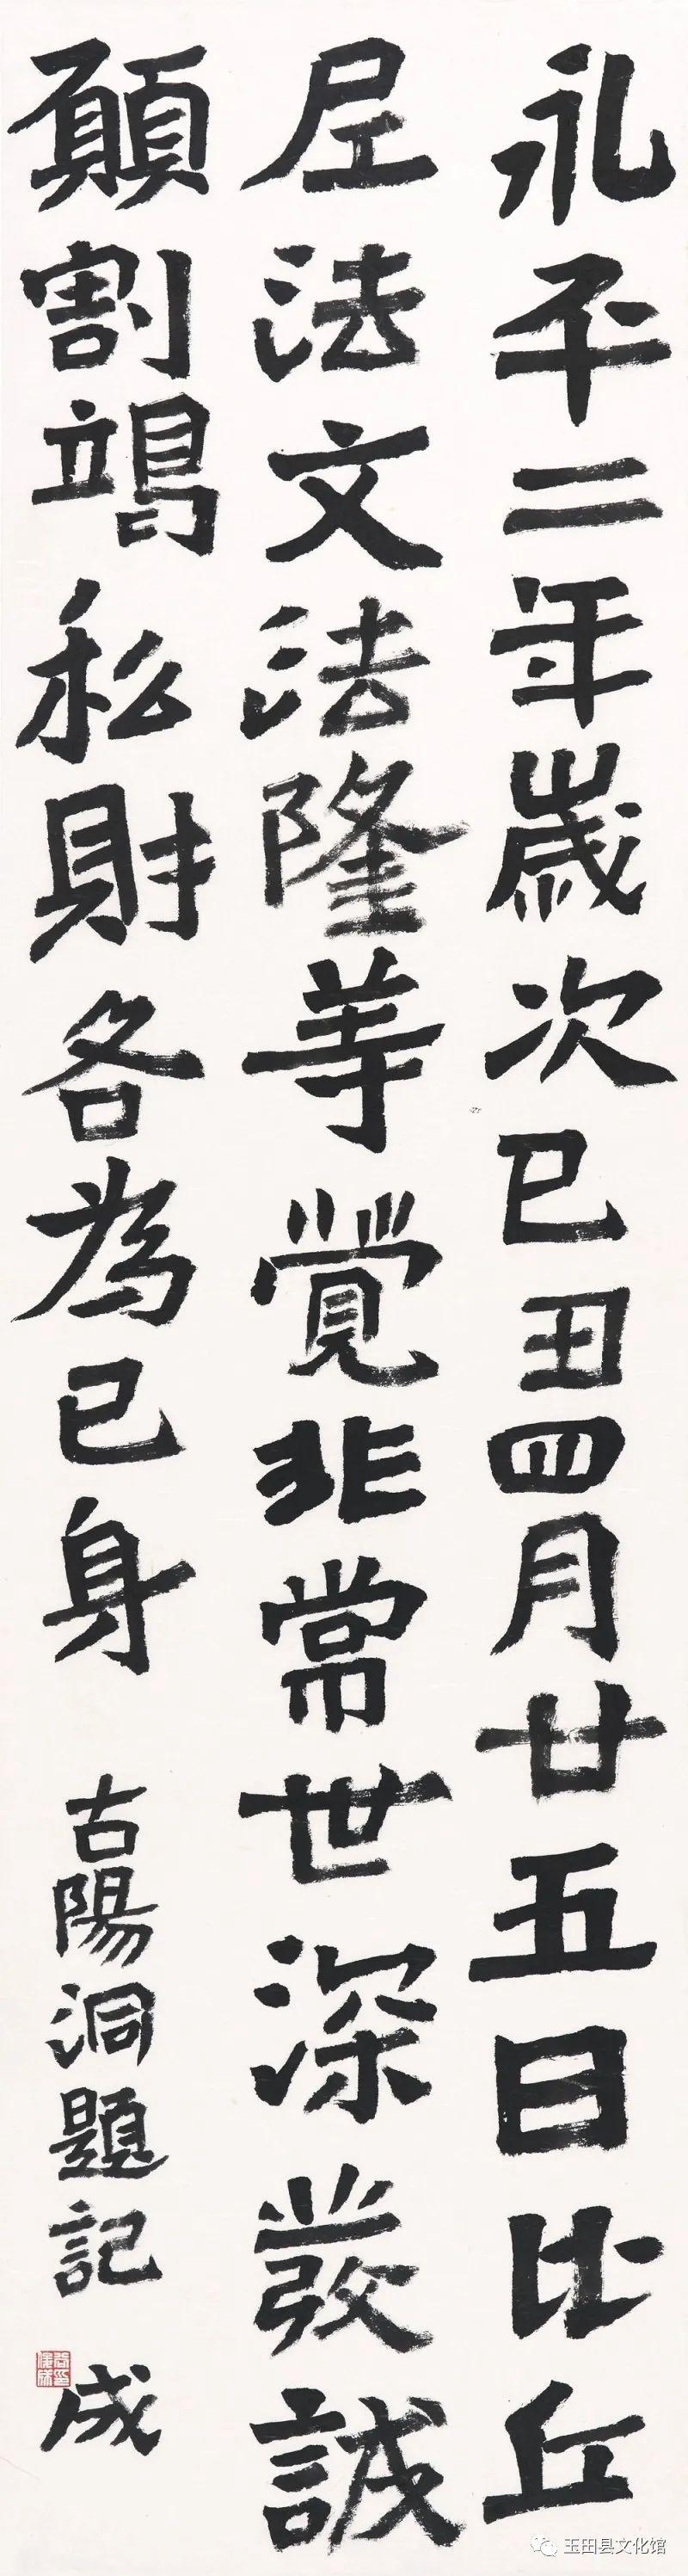 永平二年歲次己丑四月廿五日比丘
尼法文法隆等覺非常世深發誠
願割竭私財各為己身
古陽洞題記 成
玉田县文化馆